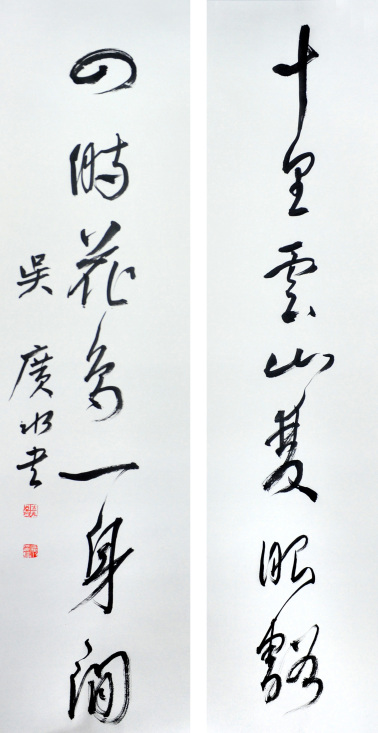 十里雲山雙眼豁
四時花鳥一身閒
吳廣水書